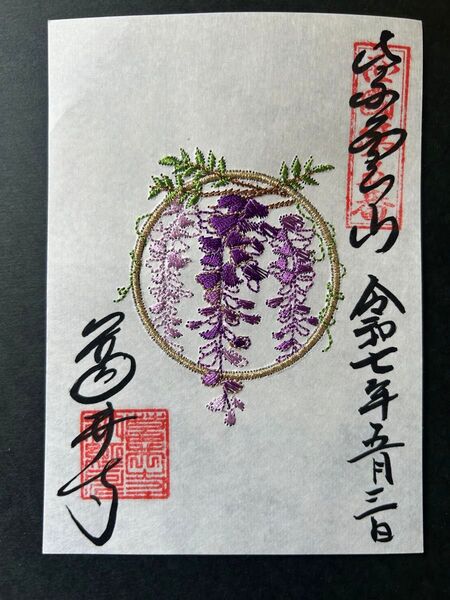 紫雲山
令和七年五月三日
葛井寺